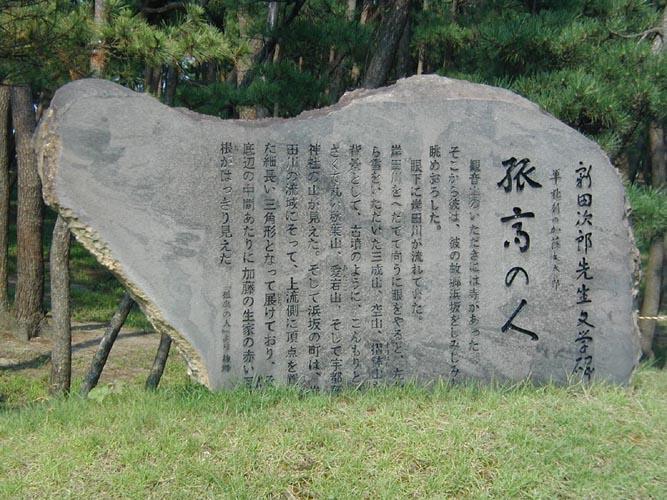 新田次郎先生文学碑
単独行の加藤文太郎
孤高の人
観音山のいただきには寺があった。
そこから彼は、彼の故郷浜坂をしみじみ
眺めおろした。
眼下に岸田川が流れていた。
岸田川をへだてて向うに眼をやると、左
ら雪をいただいた三成山、空山、
背景として、古墳のように、こんもりと
さくて丸い 山、愛宕山、そして宇都
神社の山が見えた。そして浜坂の町は、
田川の流域にそって、上流側に頂点を
た細長い三角形となって展けており、そ
底辺の中間あたりに加藤の生家の赤い
根がはっきり見えた
「孤高の人」より抜粋